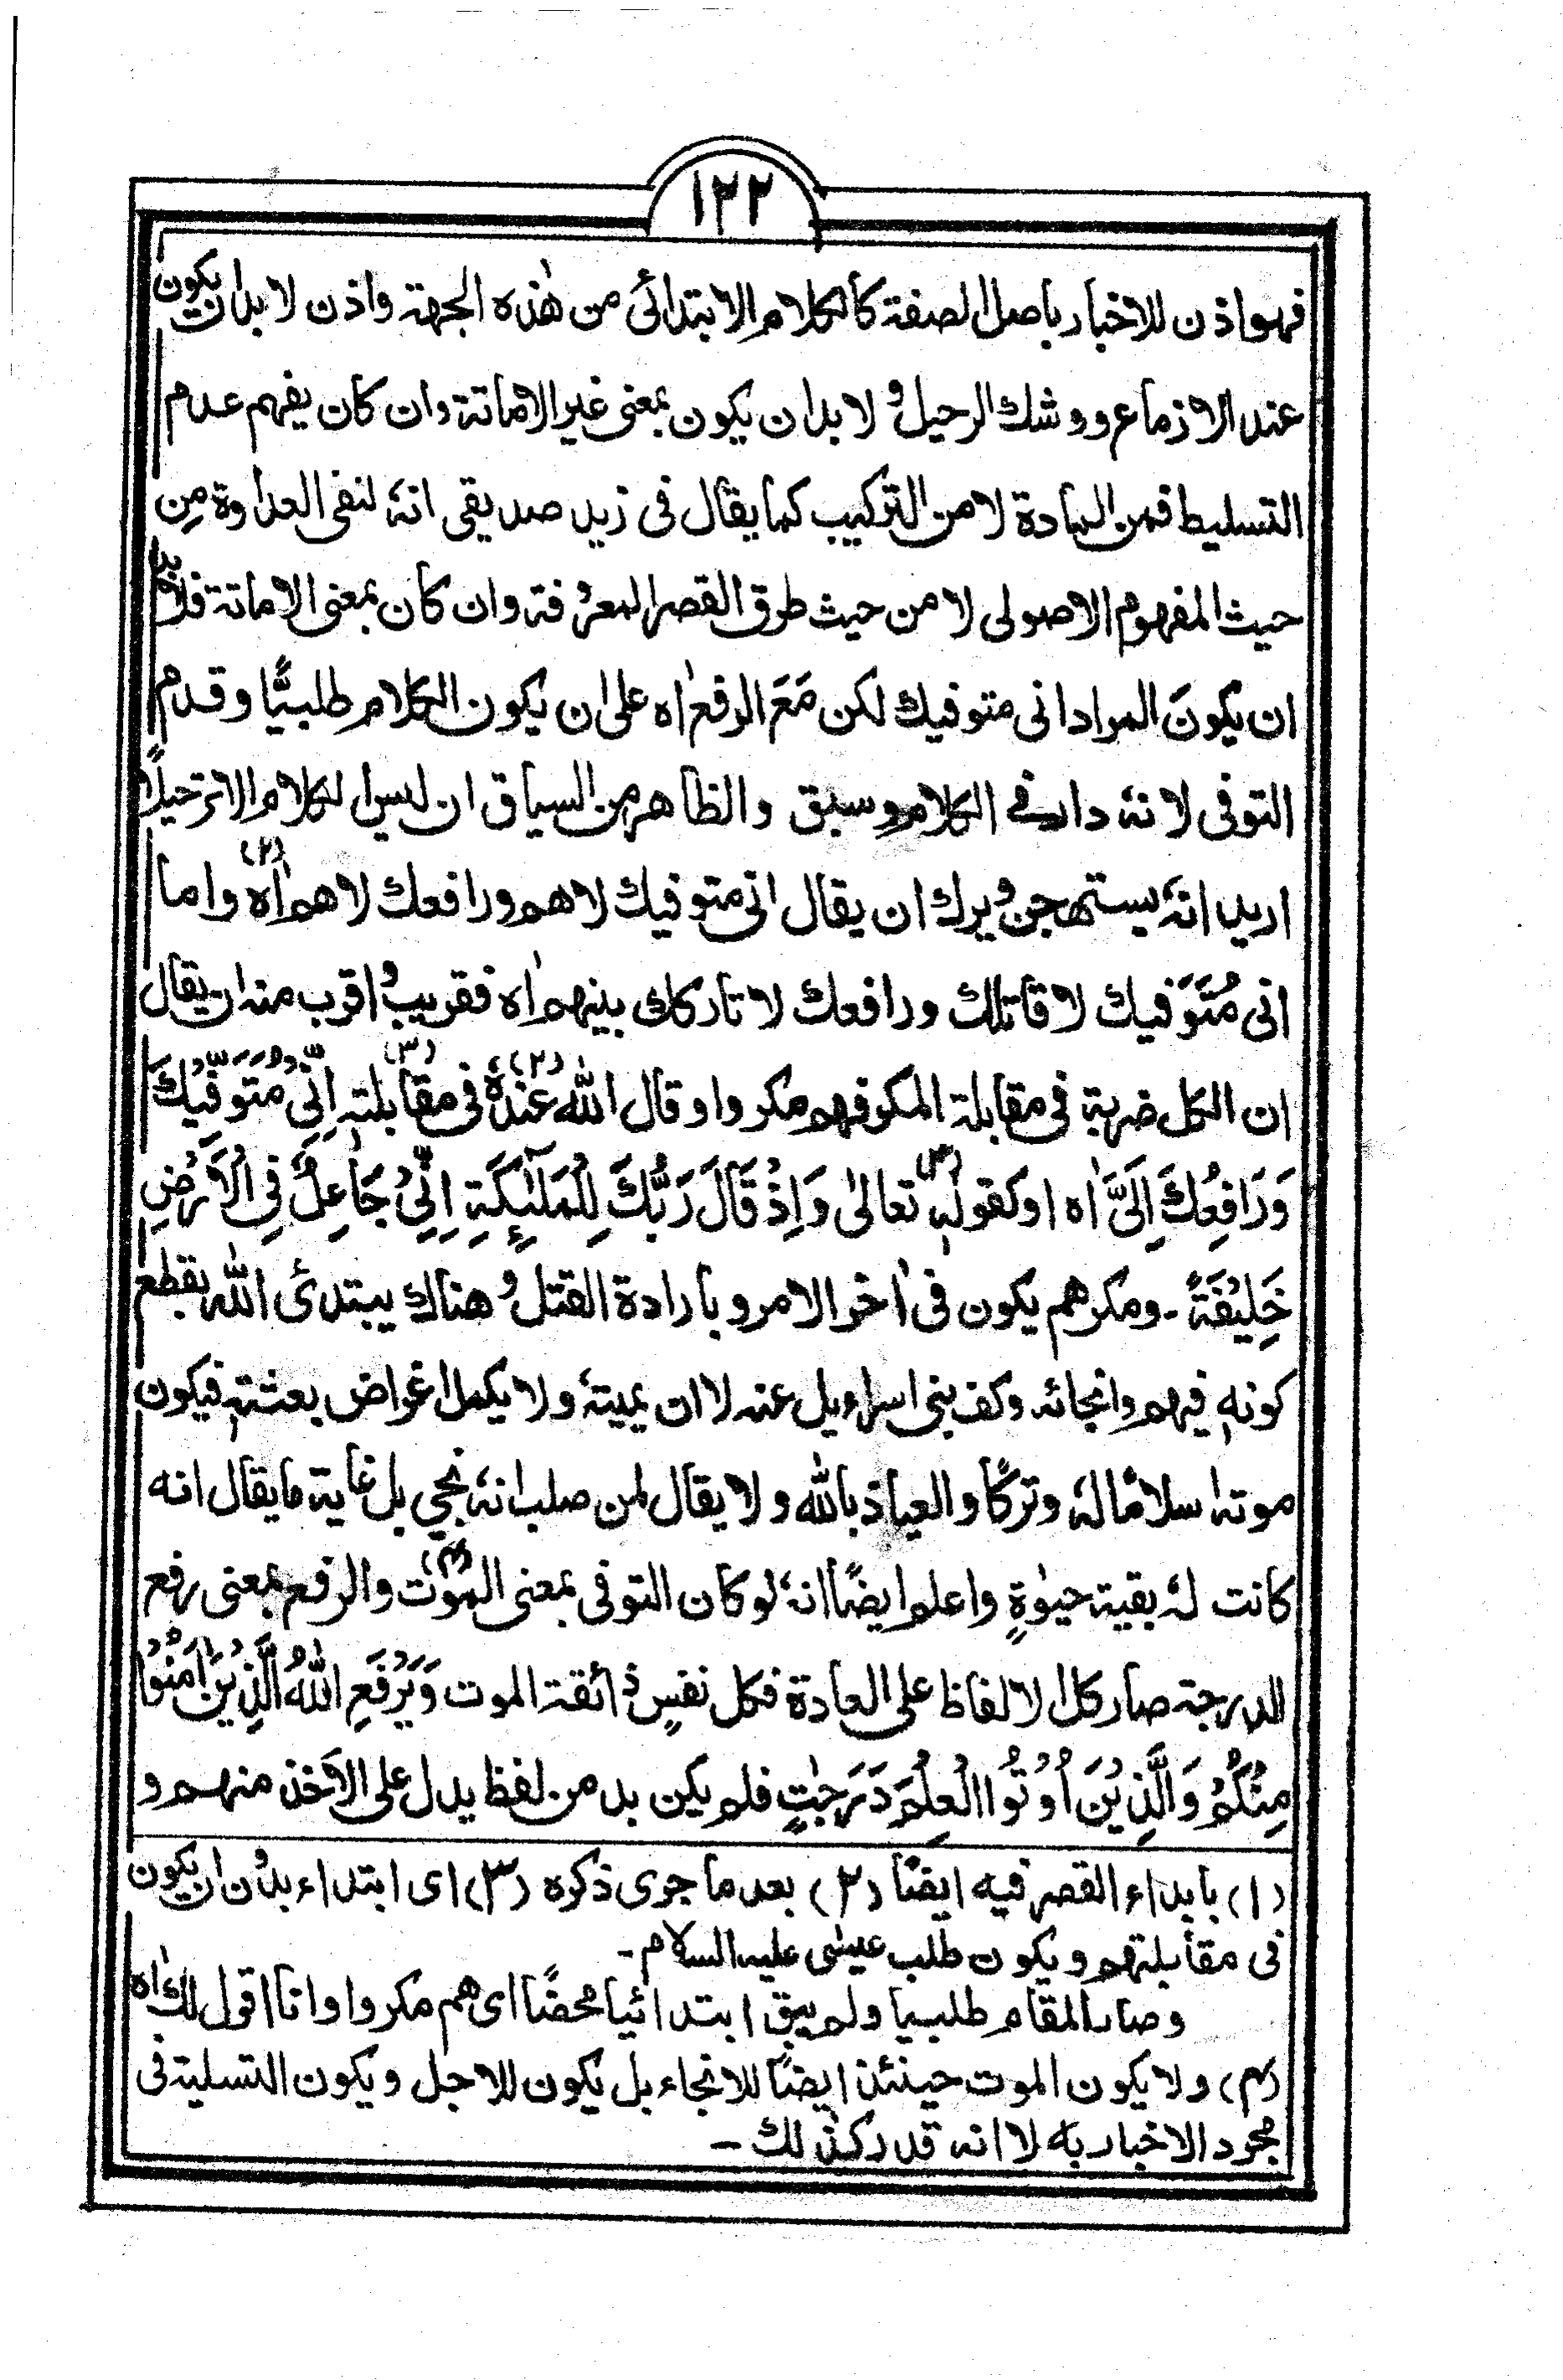 ١٢٢
فهو اذن للاخبار باصل الصفة كالكلام الابتدائى من هٰذه الجهة واذن لا بدان يكون
عند الازماع ووشك الرحيل و لا بد ان يكون بمعنى غير الاماتة وان كان يفهم عدم
التسليط فمن المادة لا من التركيب كما يقال فى زيد صديقى انهٗ لنفى العداوة مِن
حيث المفهوم الاصولى لا من حيث طرق القصر المعروفة وان كان بمعنى الاماتة فلا بد
ان يكونَ المراد انى متوفيك لكن مَعَ الرفع اٰه على ان يكون الكلام طلبيًّا وقدم
التوفى لانهٗ دار فے الكلام وسبق والظاهر من السياق ان ليس الكلام الا ترحيلاً
اريد انهٗ يستهجن ويرك ان يقال انى متوفيك لا هم ورافعك لا هم اٰه (٢) واما
انى مُتَوَفيك لا قاتلك ورافعك لا تاركك بينهم اٰه فقريب و اقرب منه ان يقال
ان الكل ضربة فى مقابلة المكر فهم مكروا وقال اللّٰه عندهٗ (٢) فى مقابلتهٖ (٣) اِنِّىْ مُتَوَفِّيْكَ
وَرَافِعُكَ اِلَىَّ اٰه او كقولهٖ (٣) تعالىٰ وَاِذْ قَالَ رَبُّكَ لِلْمَلٰٓئِكَةِ اِنِّىْ جَاعِلٌ فِى الْاَرْضِ
خَلِيْفَةً ۔ ومكرهم يكون فى اٰخر الامر و بارادة القتل و هناك يبتدئ اللّٰه بقطع
كونهٖ فيهم وانجائه وكف بنى اسراءيل عنه لا ان يميتهٗ ولا يكمل اغراض بعثتهٖ فيكون
موتهٗ اسلامًا لهٗ وتركًا والعياذ باللّٰه ولا يقال لمن صلب انهٗ نجى بل غاية ما يقال انه
كانت لهٗ بقية حيوٰةٍ واعلم ايضًا انهٗ لو كان التوفى بمعنى الموت (٤) والرفع بمعنى رفع
الدرجة صار كل الالفاظ على العادة فكل نفسٍ ذائقة الموت وَيَرْفَعِ اللّٰهُ الَّذِيْنَ اٰمَنُوْا
مِنْكُمْ وَالَّذِيْنَ اُوْتُوا الْعِلْمَ دَرَجٰتٍ فلم يكن بد من لفظ يدل على الاخذ منهم و
(١) بابداء القصر فيه ايضًا (٢) بعد ما جرى ذكره (٣) اى ابتداء بدون ان يكون
فى مقابلتهم ويكون طلب عيسٰى عليه السلام ۔
وصار المقام طلبيا ولم يبق ابتدائيا محضًا اى هم مكروا وانا اقول لك اٰه
(٤) ولا يكون الموت حينئذ ايضًا للانجاء بل يكون للاجل ويكون التسلية فى
مجرد الاخبار به لا انه قدر كذٰلك —